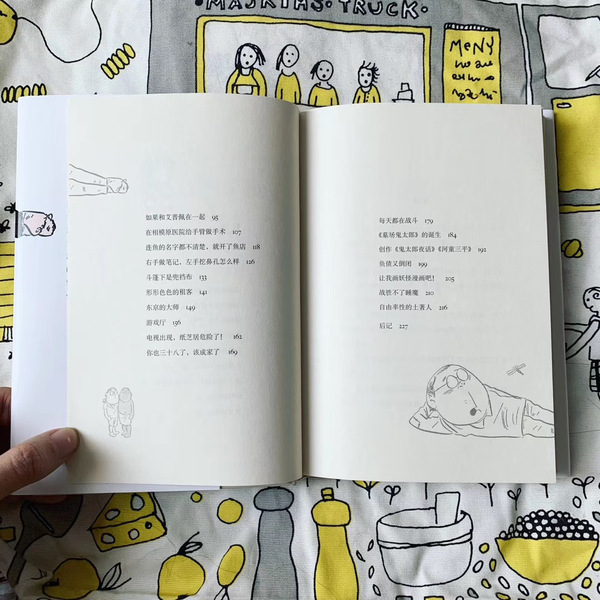 MAJRIHS TRUCK
MENY
如果和艾普佩在一起 95
在相模原医院给手臂做手术 107
连鱼的名字都不清楚，就开了鱼店 118
右手做笔记，左手挖鼻孔怎么样 126
斗篷下是兜裆布 133
形形色色的租客 141
东京的大师 149
游戏厅 156
电视出现，纸芝居危险了！ 162
你也三十八了，该成家了 169
每天都在战斗 179
《墓场鬼太郎》的诞生 184
创作《鬼太郎夜话》《河童三平》 192
负债又倒闭 199
让我画妖怪漫画吧！ 205
战胜不了睡魔 210
自由率性的土著人 216
后记 227